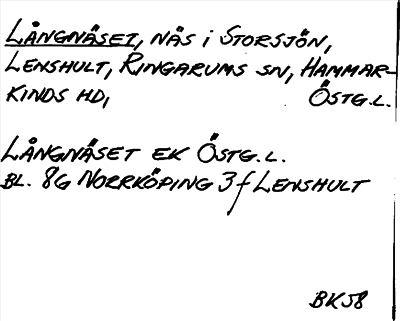 LÅNGNÄSET, NÄS i STORSJÖN,
LENSHULT, RINGARUMS SN, HAMMAR-
KINDS HD, ÖSTG.L.
LÅNGNÄSET EK ÖSTG.L.
BL. 8G NORRKÖPING 3f LENSHULT
BK58